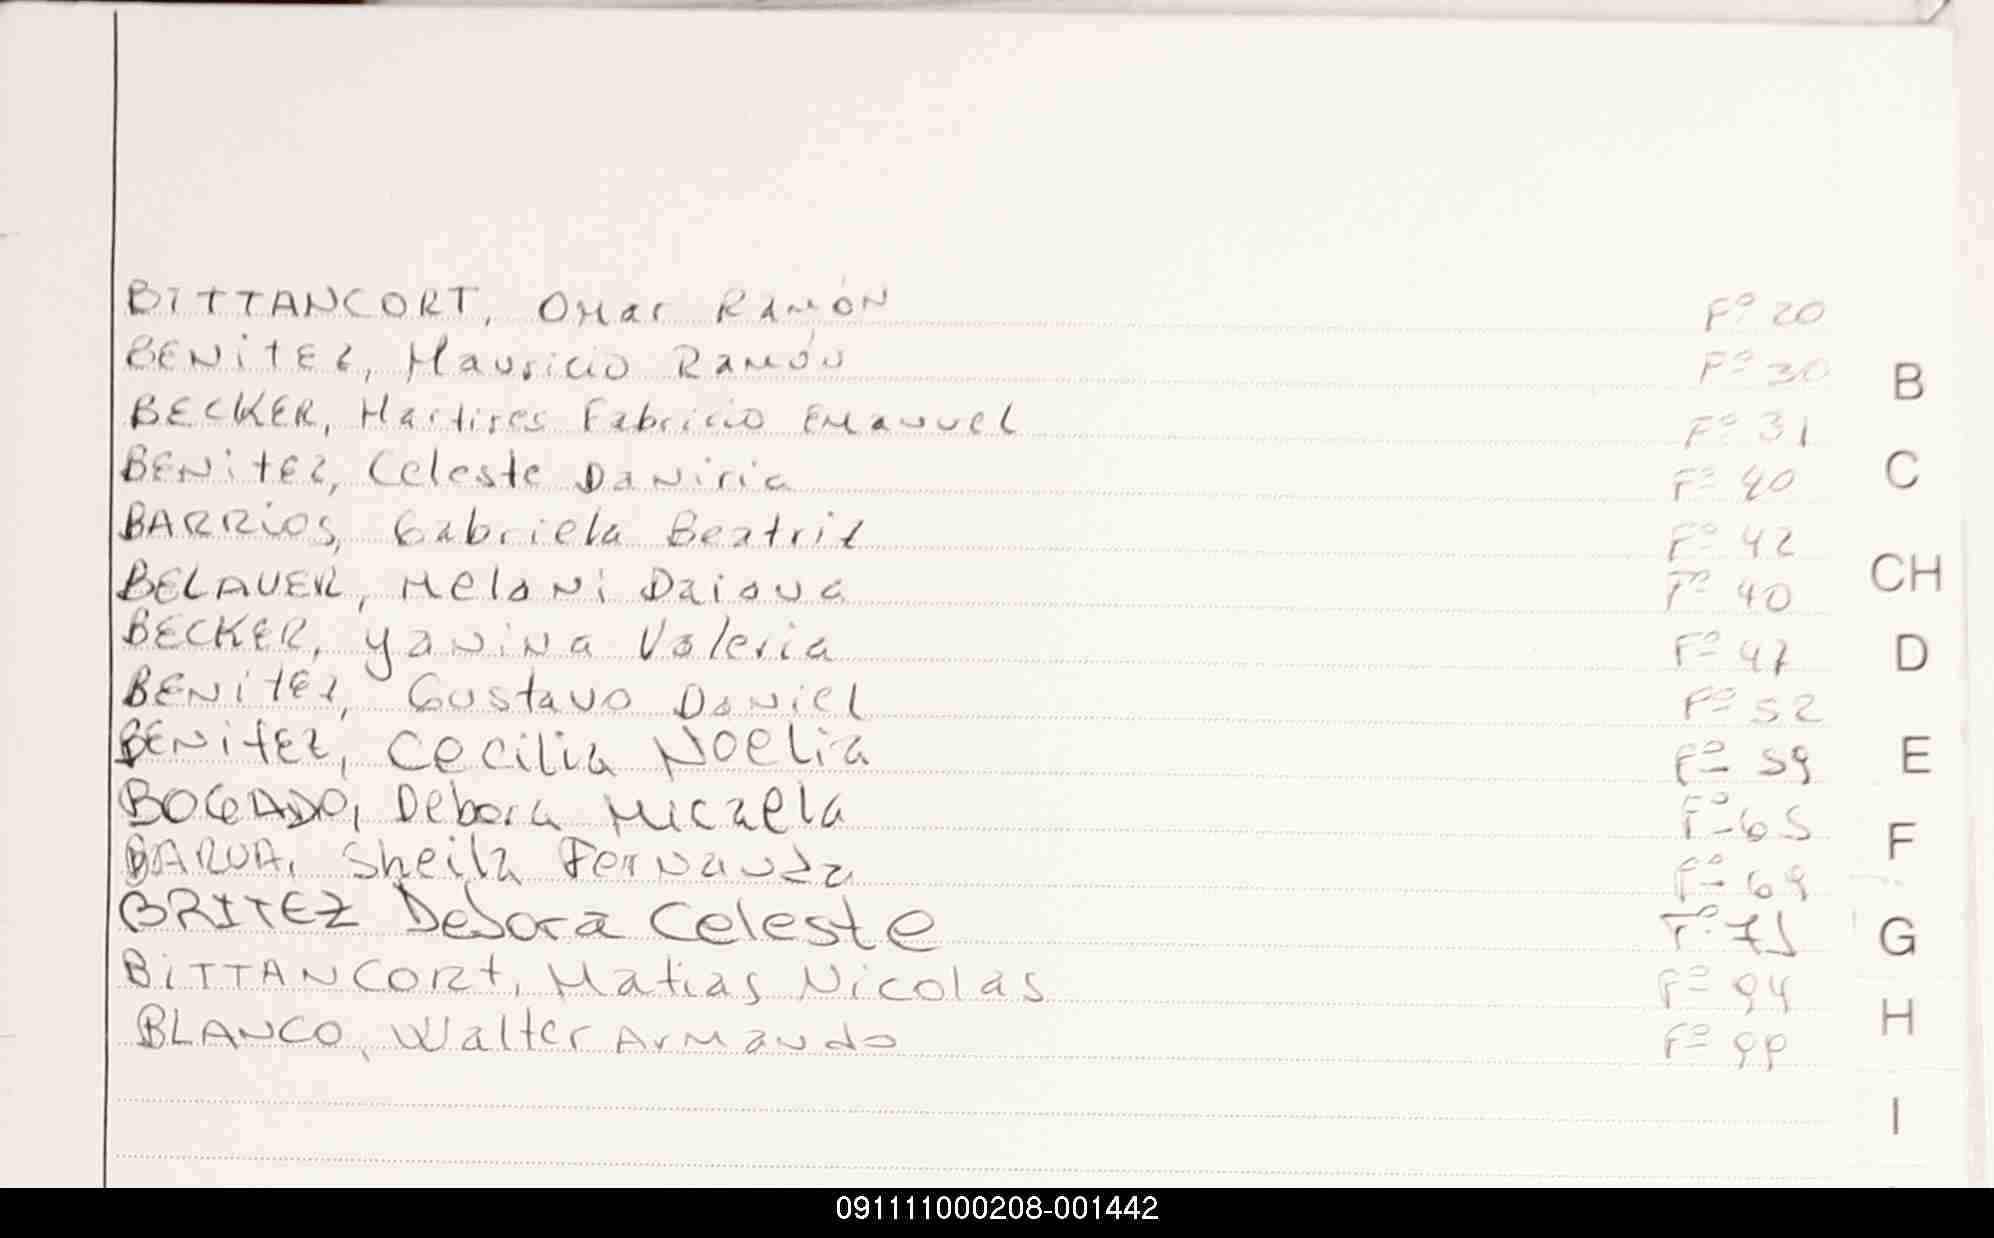 BITTANCORT, Omar Ramón Fº 20
BENITEZ, Mauricio Ramón Fº 30
BECKER, Martires Fabricio Emanuel Fº 31
BENITEZ, Celeste Daniria Fº 40
BARRIOS, Gabriela Beatriz Fº 42
BELAUER, Melani Daiana Fº 40
BECKER, Yanina Valeria Fº 47
BENITEZ, Gustavo Daniel Fº 52
BENITEZ, Cecilia Noelia Fº 59
BOGADO, Debora Micaela Fº 65
BARUA, Sheila Fernanda Fº 69
BRITEZ Debora Celeste Fº
BITTANCORT, Matias Nicolas Fº 94
BLANCO, Walter Armando Fº
B
C
CH
D
E
F
G
H
I
091111000208-001442